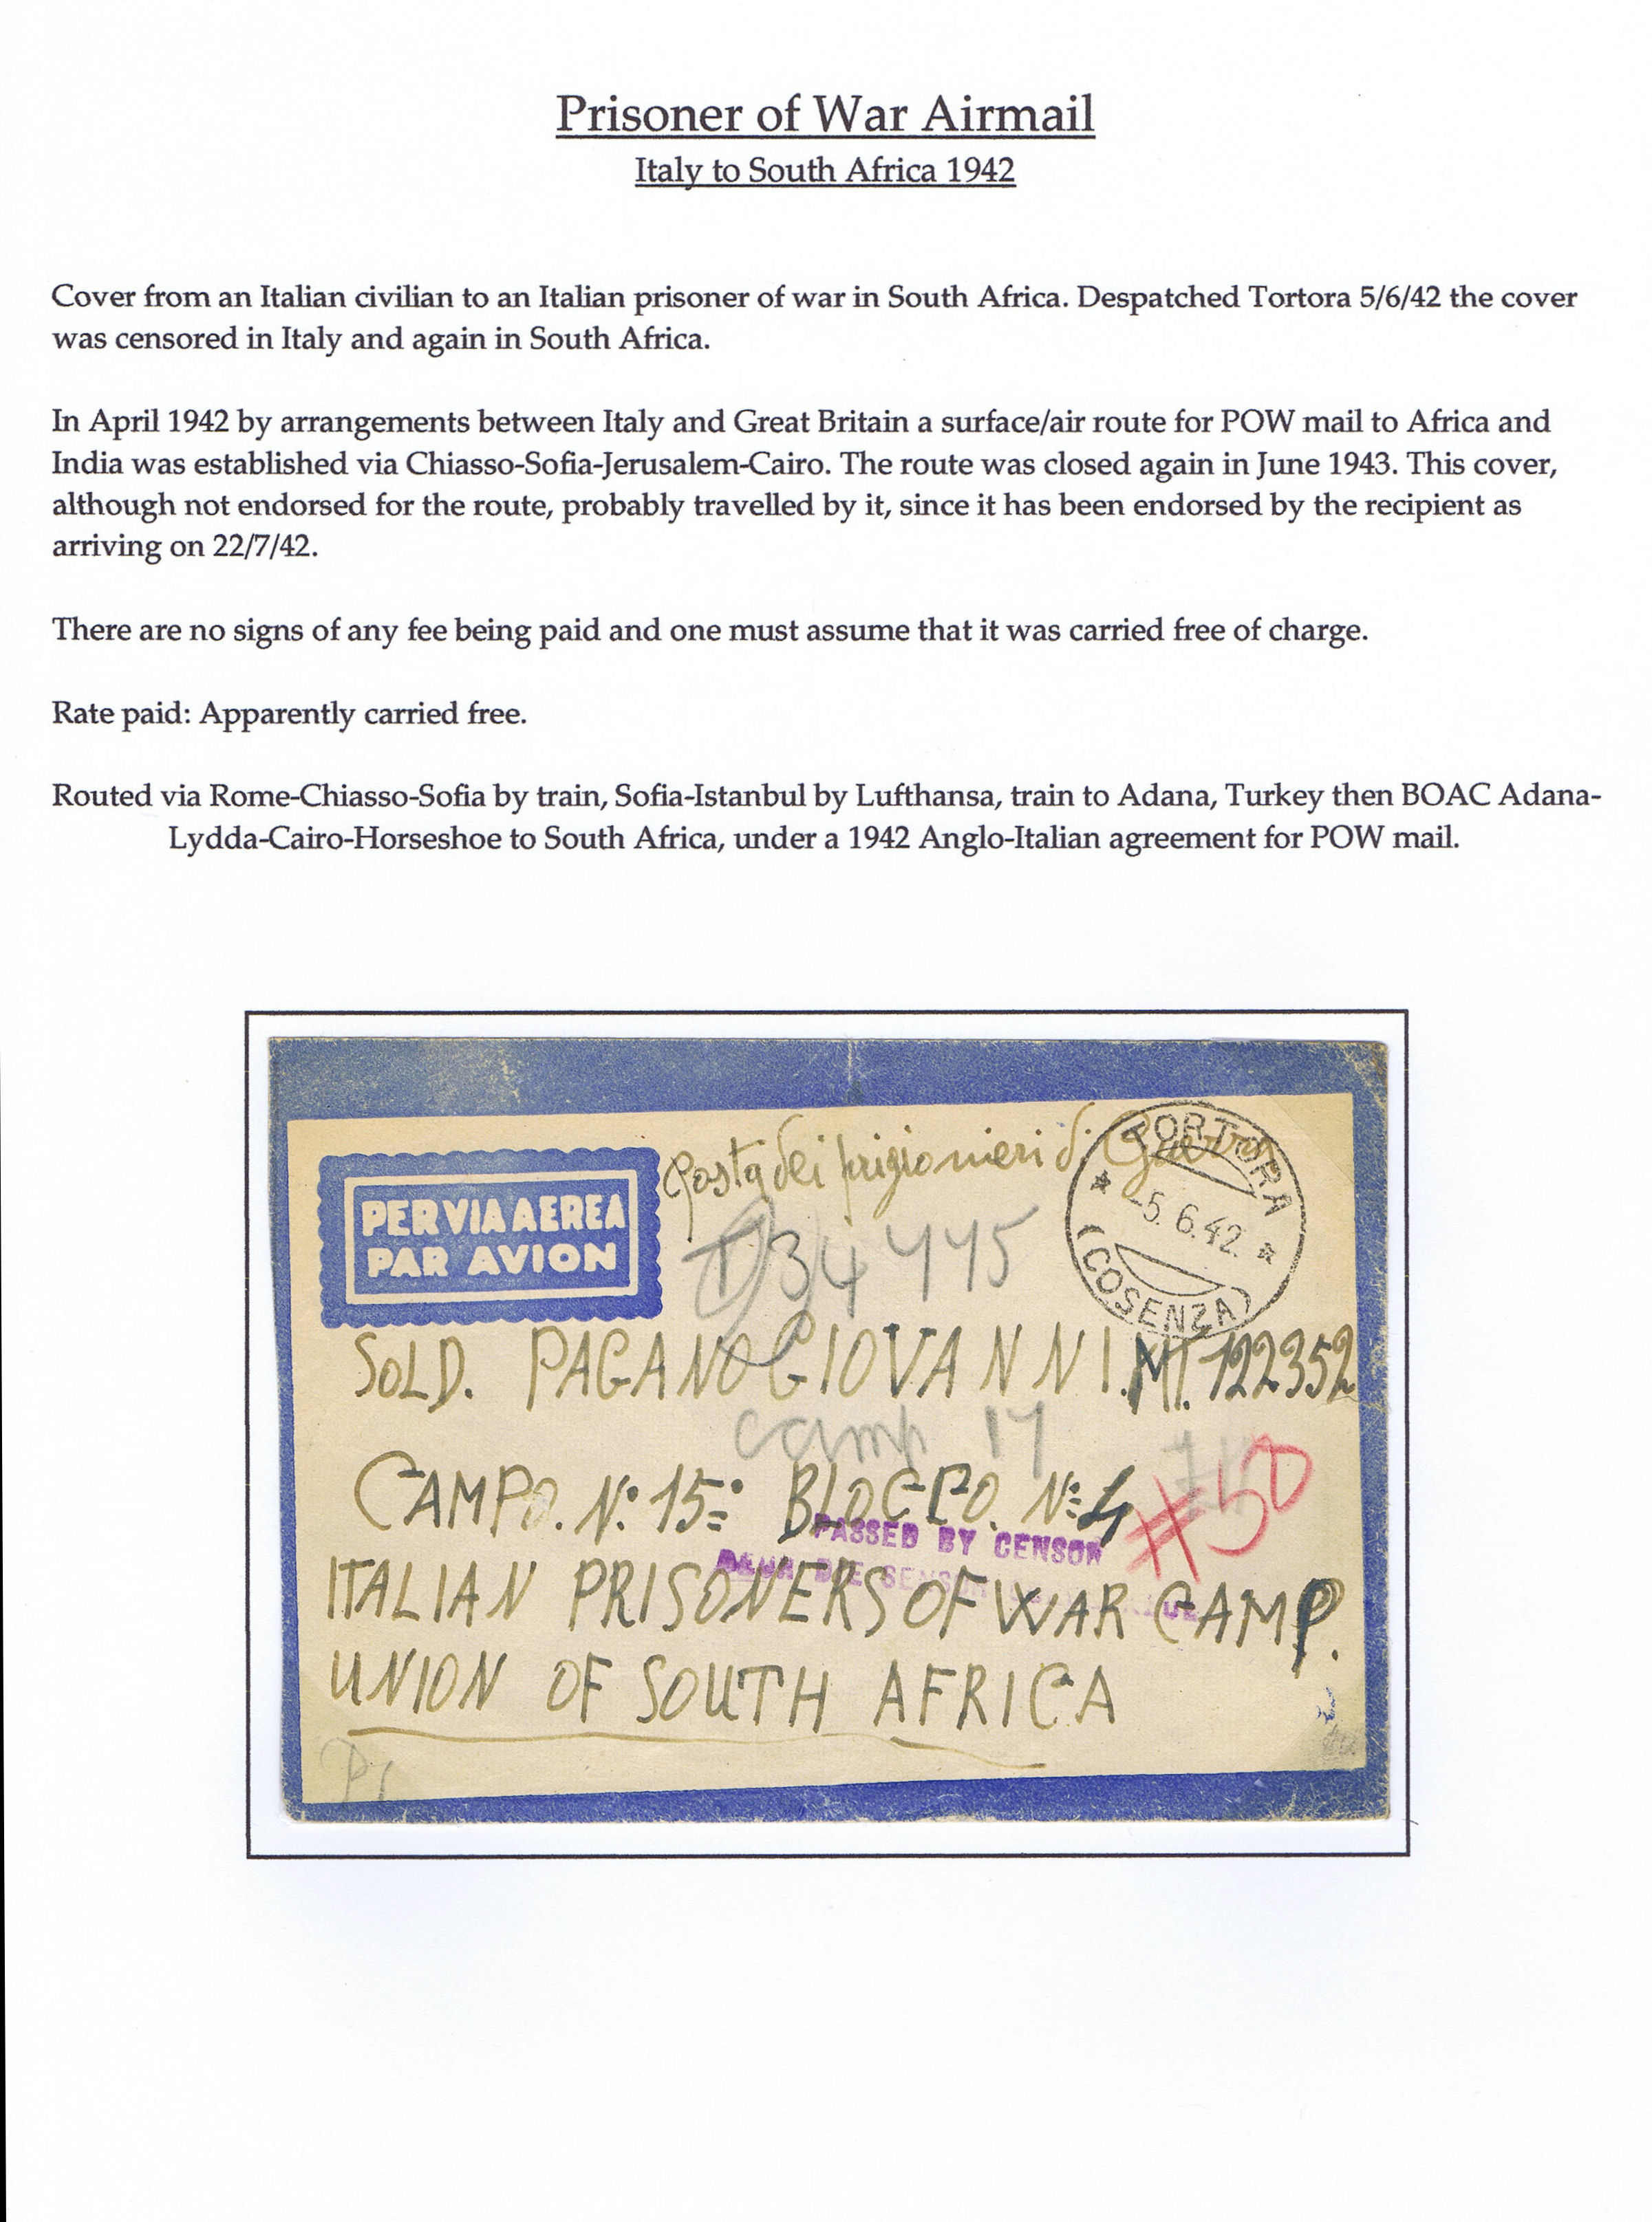 Prisoner of War Airmail
Italy to South Africa 1942
Cover from an Italian civilian to an Italian prisoner of war in South Africa. Despatched Tortora 5/6/42 the cover
was censored in Italy and again in South Africa.
In April 1942 by arrangements between Italy and Great Britain a surface/air route for POW mail to Africa and
India was established via Chiasso-Sofia-Jerusalem-Cairo. The route was closed again in June 1943. This cover,
although not endorsed for the route, probably travelled by it, since it has been endorsed by the recipient as
arriving on 22/7/42.
There are no signs of any fee being paid and one must assume that it was carried free of charge.
Rate paid: Apparently carried free.
Routed via Rome-Chiasso-Sofia by train, Sofia-Istanbul by Lufthansa, train to Adana, Turkey then BOAC Adana-
Lydda-Cairo-Horseshoe to South Africa, under a 1942 Anglo-Italian agreement for POW mail.
Posta dei prigionieri di Guerra
TORTORA
-5. 6.42
(COSENZA)
PER VIA AEREA
PAR AVION
34445
SOLD. PAGANO GIOVANNI. MT. 122352
Camp 14
CAMPO. N: 15: BLOCCO. N: 4
#50
PASSED BY CENSOR
ITALIAN PRISONERS OF WAR CAMP.
UNION OF SOUTH AFRICA